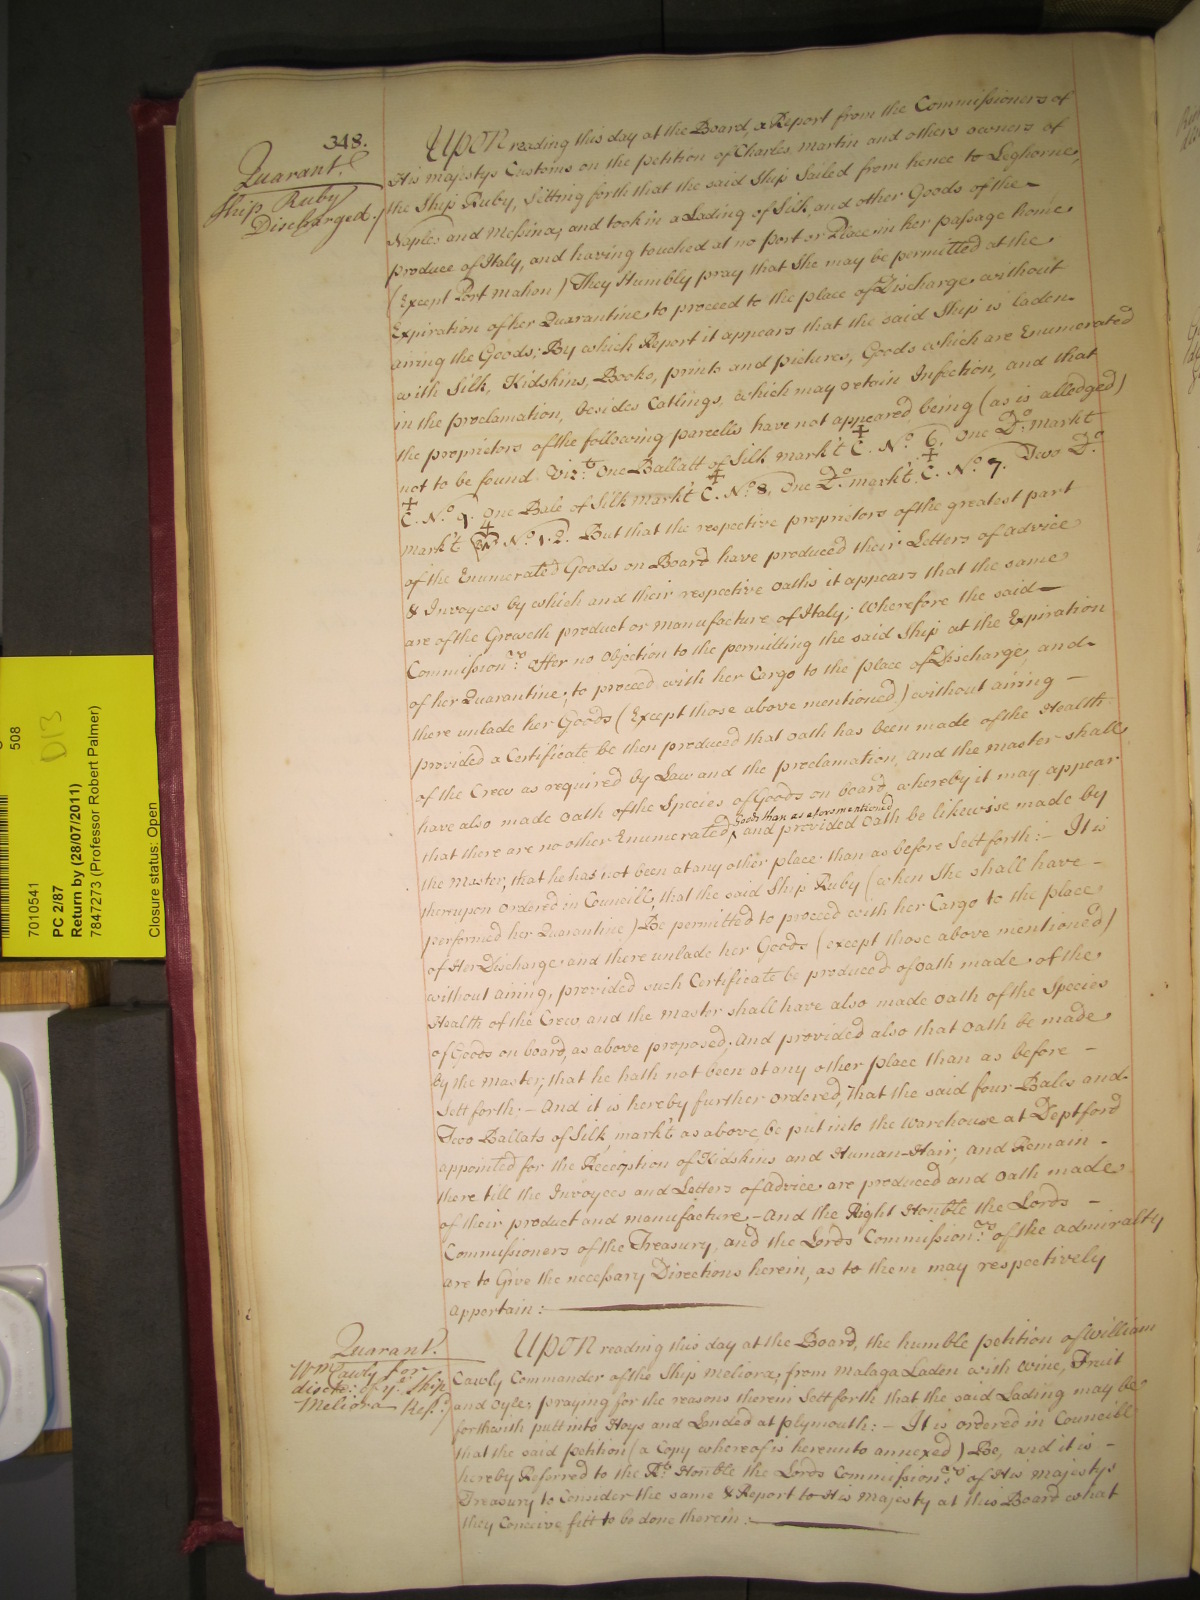 348.
Quarant.e
Ship Ruby
Discharged.
UPON reading this day at the Board, a Report from the Commissioners of
His majestys Customs on the petition of Charles Martin and others owners of
the Ship Ruby, Setting forth that the said Ship Sailed from hence to Leghorne,
Naples and Messina, and took in a Lading of Silk, and other Goods of the
produce of Italy, and having touched at no port or Place in her passage home
(Except Port Mahon) They Humbly pray that She may be permitted at the
Expiration of her Quarantine, to proceed to the place of Discharge without
airing the Goods; By which Report it appears that the said Ship is laden
with Silk, Kidskins, Books, prints and pictures, Goods which are Enumerated
in the proclamation, besides Catlings, which may retain Infection, and that
the proprietors of the following parcells have not appeared being (as is alledged)
not to be found. Vizt. One Ballatt of Silk mark't C. No. 6. One Do. markt
C. No. 9. One Bale of Silk markt C. No. 8. One Do. mark't C. No. 7. Two Do.
mark't No. 1. 2. But that the respective proprietors of the greatest part
of the Enumerated Goods on Board have produced their Letters of advice
& Invoyces by which and their respective oaths it appears that the same
are of the Growth product or manufacture of Italy; Wherefore the said
Commissionrs. offer no Objection to the permitting the said Ship at the Expiration
of her Quarantine, to proceed with her Cargo to the place of Discharge, and
there unlade her Goods (Except those above mentioned) without airing —
provided a Certificate be then produced that oath has been made of the Health
of the Crew as required by Law and the proclamation, and the master shall
have also made oath of the Species of Goods on board, whereby it may appear
Goods than as aforementioned
that there are no other Enumerated, and provided Oath be likewise made by
the Master, that he has not been at any other place than as before Sett forth: — It is
thereupon Ordered in Councill, that the said Ship Ruby (when She shall have —
performed her Quarantine) Be permitted to proceed with her Cargo to the place
of Her Discharge and there unlade her Goods (except those above mentioned)
without airing, provided such Certificate be produced of oath made of the
Health of the Crew, and the master shall have also made oath of the Species
of Goods on board, as above proposed. And provided also that oath be made
by the master, that he hath not been at any other place than as before —
Sett forth. — And it is hereby further ordered, that the said four Bales and
Two Ballats of Silk, mark't as above, be put into the warehouse at Deptford
appointed for the Reception of Kidskins and Human-Hair, and Remain —
there till the Invoyces and Letters of Advice are produced and Oath made
of their product and manufacture — And the Right Honble the Lords —
Commissioners of the Treasury, and the Lords Commissionrs. of the admiralty
are to Give the necessary Directions herein, as to them may respectively
appertain: —
Quarant.
Wm Cawly for
discha: of ye. Ship
Meliora Ref.d
UPON reading this day at the Board, the humble petition of William
Cawly Commander of the Ship Meliora, from Malaga Laden with wine, Fruit
and Oyle, praying for the reasons therein Sett forth that the said Lading may be
forthwith putt into Hoys and Landed at plymouth: — It is ordered in Councill
that the said petition (a Copy whereof is hereunto annexed) Be, and it is —
hereby Referred to the Rt. Honble the Lords Commissionrs. of His majestys
Treasury to Consider the same & Report to His majesty at this Board what
they Conceive fitt to be done therein: —
508
D13
7010541
PC 2/87
Return by (28/07/2011)
7847273 (Professor Robert Palmer)
Closure status: Open